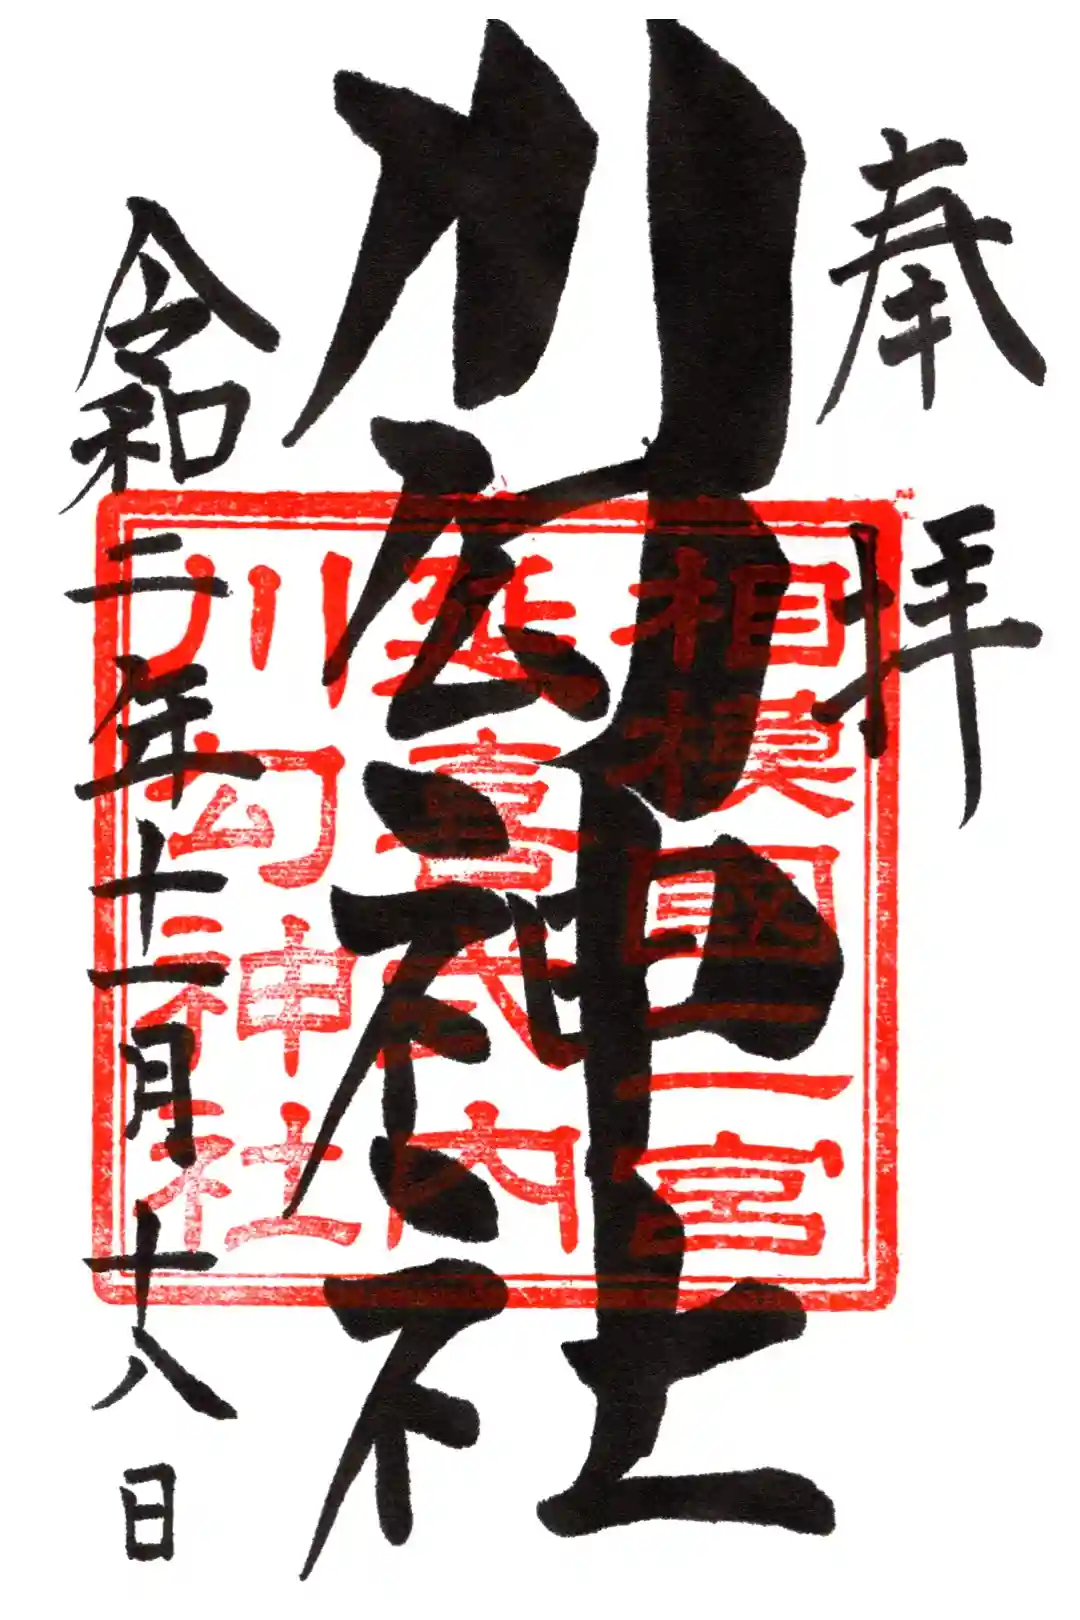 奉拝
川匂神社
令和二年十一月十八日
相模國二宮
延喜式内
川勾神社